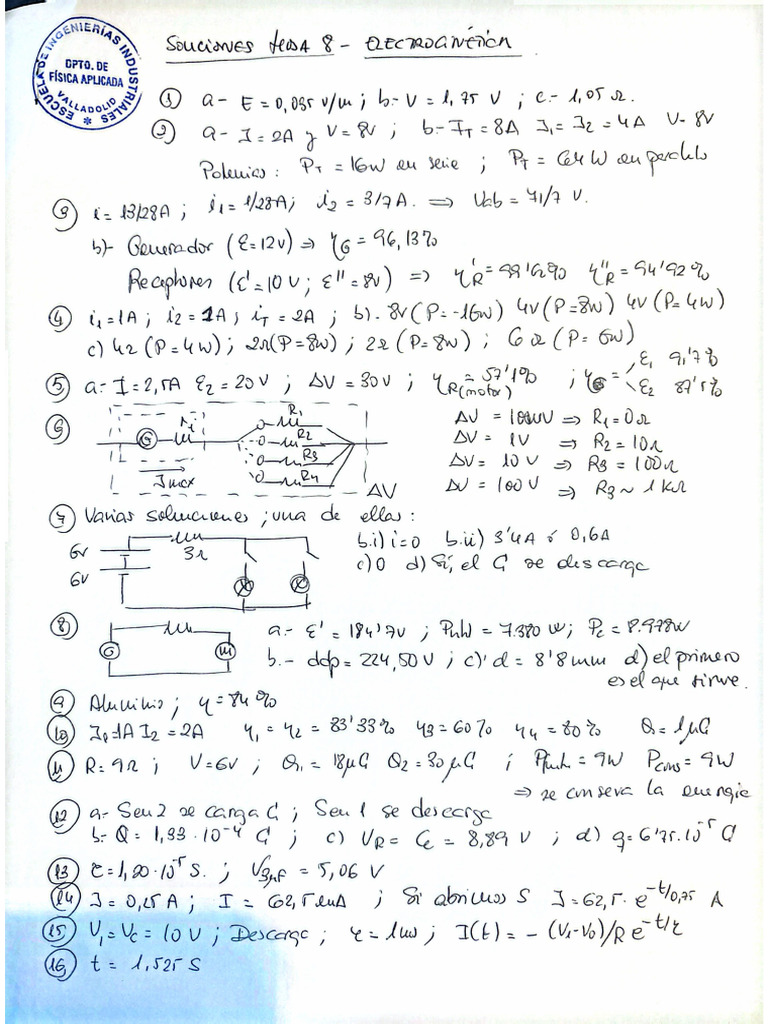 ESCUELA DE INGENIERÍAS INDUSTRIALES
DPTO. DE
FÍSICA APLICADA
VALLADOLID
SOLUCIONES TEMA 8 - ELECTROCINÉTICA
1) a.- E = 0,035 V/m ; b.- V = 1,75 V ; c.- 1,05 Ω.
2) a.- I = 2A y V = 8V ; b.- IT = 8A I1 = I2 = 4A V = 8V
Potencias: PT = 16W en serie ; PT = 64W en paralelo
3) i = 13/28A ; i1 = 1/28A; i2 = 3/7A. ⇒ Vab = 71/7 V.
b)- Generador (E=12V) ⇒ ηG = 96,13%
Receptores (ε' = 10V ; ε'' = 8V) ⇒ η'R = 99'62% η''R = 94'92%
4) i1 = 1A ; i2 = 1A ; iT = 2A ; b). 8V (P=-16W) 4V (P=8W) 4V (P=4W)
c) 4Ω (P=4W) ; 2Ω (P=8W) ; 2Ω (P=8W) ; 6Ω (P=6W)
5) a.- I = 2,5A ε2 = 20V ; ΔV = 30V ; ηR(motor) = 57'1% ; ηG = ε1 9,'7% ε2 87'5%
6) G ri R1 R2 R3 R4 Imax ΔV
ΔV = 100mV ⇒ R1 = 0Ω
ΔV = 1V ⇒ R2 = 10Ω
ΔV = 10V ⇒ R3 = 100Ω
ΔV = 100V ⇒ R3 ~ 1KΩ
7) Varias soluciones ; una de ellas:
6V 6V 3Ω
b.i) i=0 b.ii) 3'4A ó 0,6A
c) 0 d) Sí, el G se descarga
8) G M
a.- ε' = 184'7V ; Putil = 7.380 W ; Pc = 8.978W
b.- ddp = 224,50V ; c)' d = 8'8mm d) el primero
es el que sirve.
9) Aluminio ; η = 84%
10) I1=1A I2=2A η1 = η2 = 83'33% η3 = 60% η4 = 80% Q = 1μC
11) R = 9Ω ; V = 6V ; Q1 = 18μC Q2 = 30μC ; Psum = 9W Pcons = 9W
⇒ se conserva la energía
12) a.- S en 2 se carga C ; S en 1 se descarga
b.- Q = 1,33·10^-4 C ; c) VR = 8,89 V ; d) q = 6'75·10^-5 C
13) τ = 1,20·10^-5 s. ; V3μF = 5,06 V
14) I = 0,25A ; I = 62,5mA ; Si abrimos S I = 62,5·e^-t/0,75 A
15) V1 = VC = 10V ; Descarga ; I(t) = -(V1-V0)/R e^-t/τ
16) t = 1,525 s